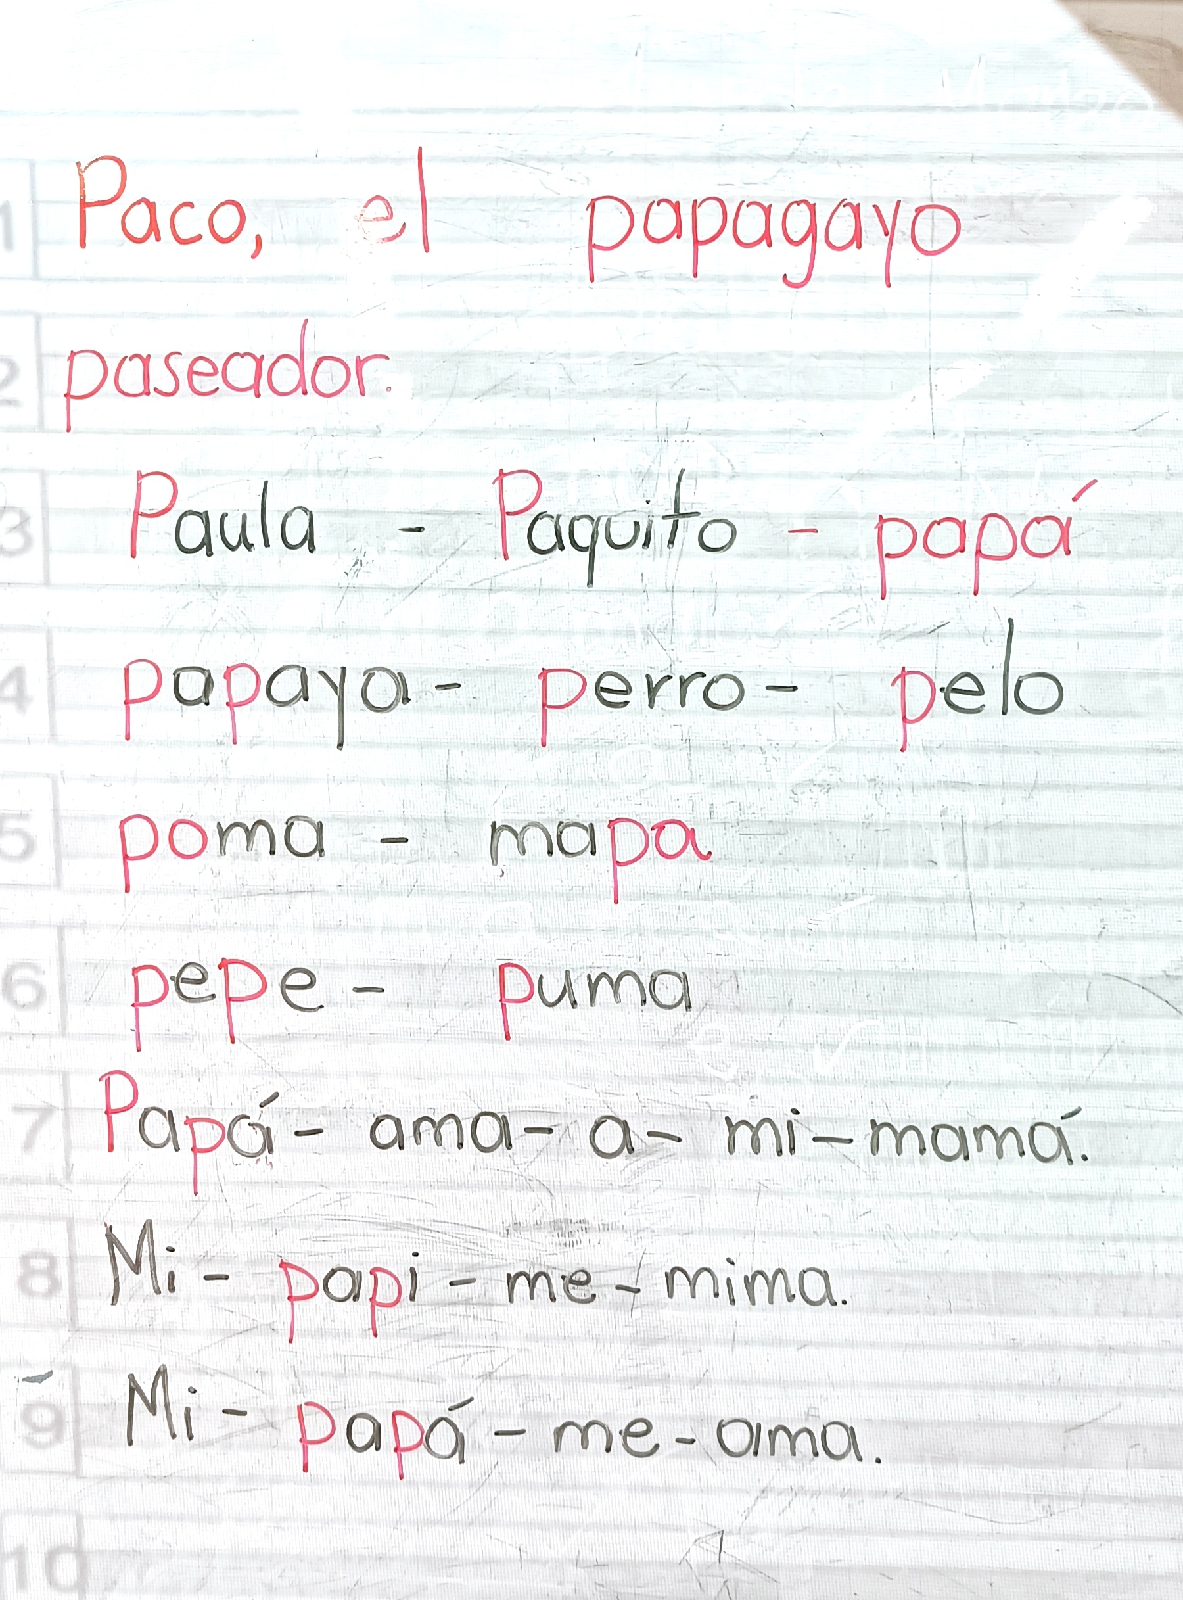 1 Paco, el papagayo
2 paseador.
3 Paula - Paquito - papá
4 papaya - perro - pelo
5 poma - mapa
6 pepe - puma
7 Papá - ama - a - mi - mamá.
8 Mi - papi - me - mima.
9 Mi - papá - me - ama.
10